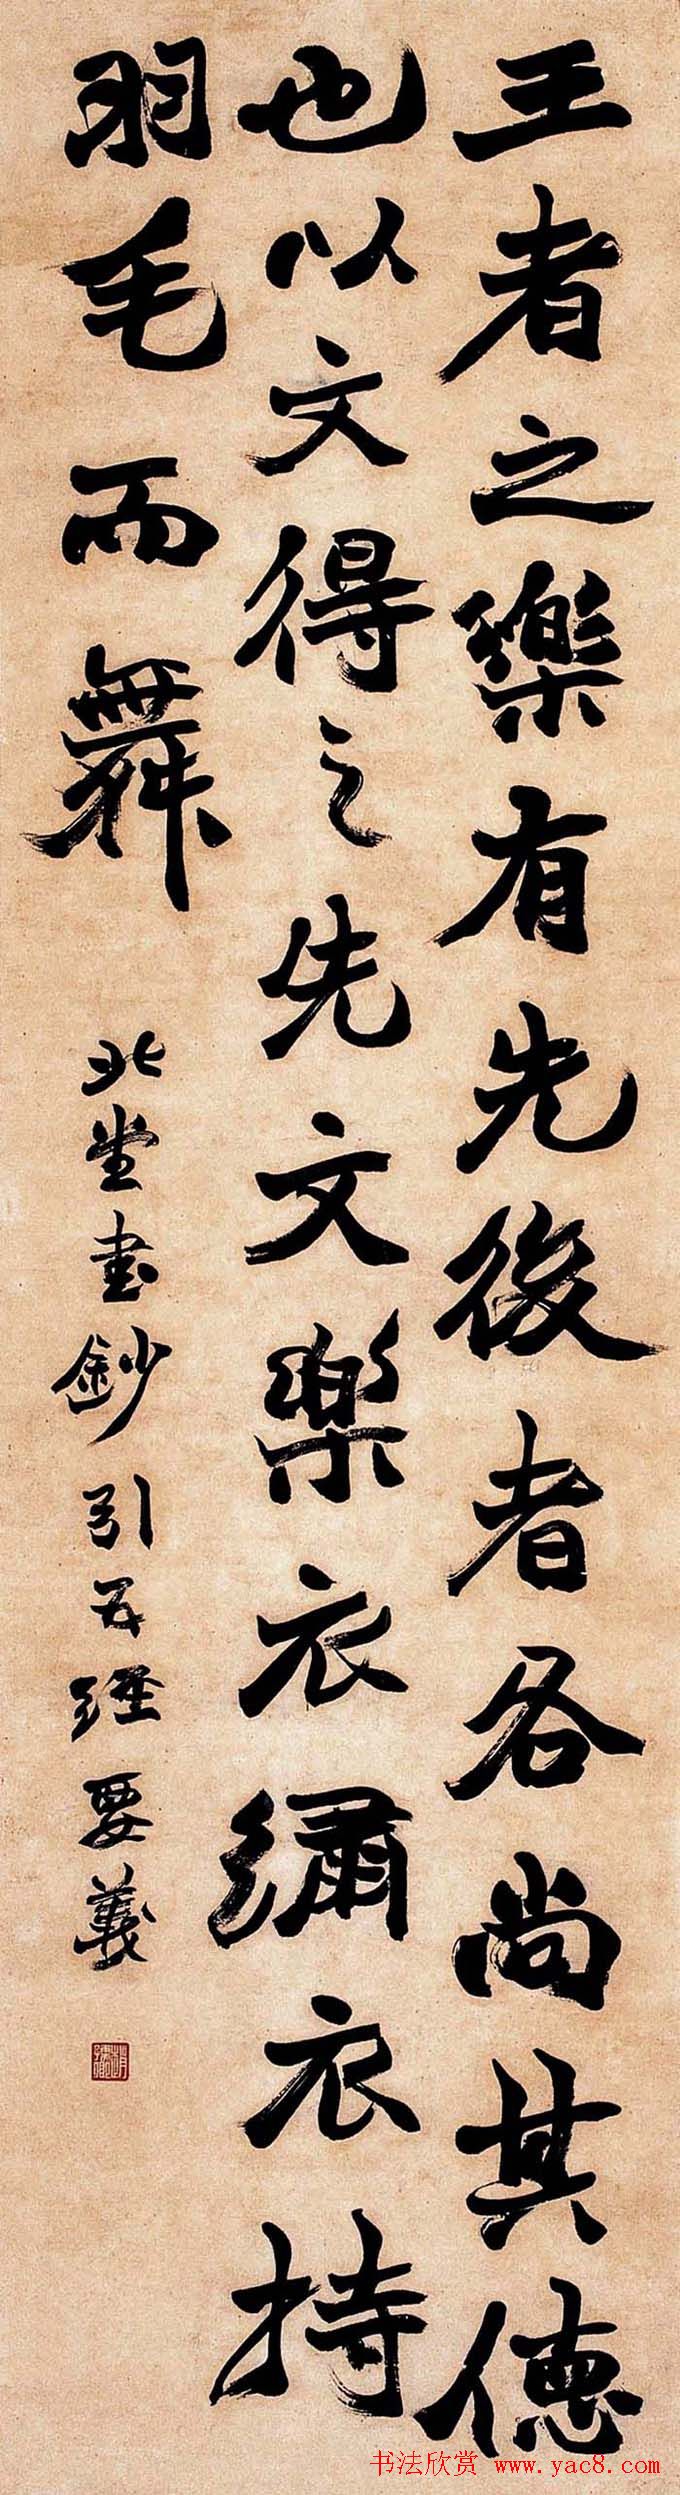 王者之樂有先後者各尚其德
也以文得之先文樂衣繡衣持
羽毛而舞
北堂書鈔引五經要義
书法欣赏 www.yac8.com